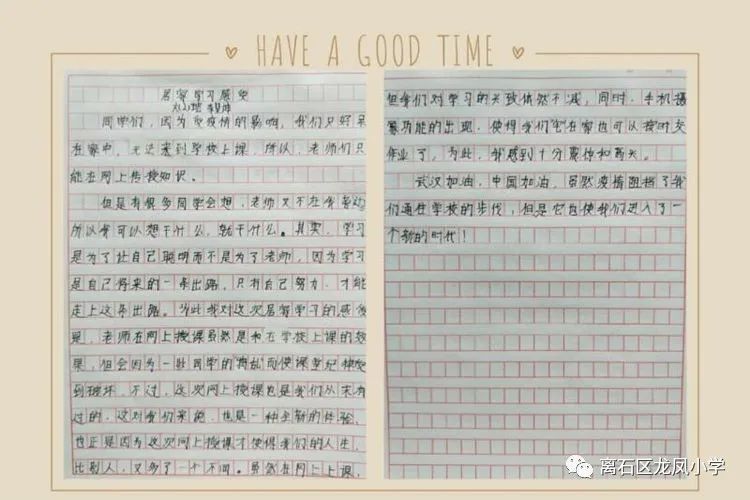 HAVE A GOOD TIME
居家学习感受
同学们，因为受疫情的影响，我们只好呆
在家中，无法来到学校上课，所以，老师们只
能在网上传授知识。
但是有很多同学会想，老师又不在我身边
所以我可以想干什么，就干什么。其实，学习
是为了让自己聪明而不是为了老师，因为学习
是自己将来的一条出路，只有自己努力，才能
走上这条出路。为此我对这次居家学习的感受
是，老师在网上授课虽然是和在学校上课的效
果，但会因为一些同学的"捣乱"而使课堂纪律受
到破坏，不过，这次网上授课也是我们从未有
过的，这对我们来说，也是一种全新的体验，
也正是因为这次网上授课才使得我们的人生，
比别人，又多了一个不同。虽然在网上上课，
但我们对学习的兴致依然不减，同时，手机摄
像功能的出现，使得我们在家也可以按时交
作业了，为此，我感到十分震惊和高兴。
武汉加油，中国加油，虽然疫情阻挡了我
们通往学校的步伐，但是它也使我们进入了一
个新的时代！
离石区龙凤小学